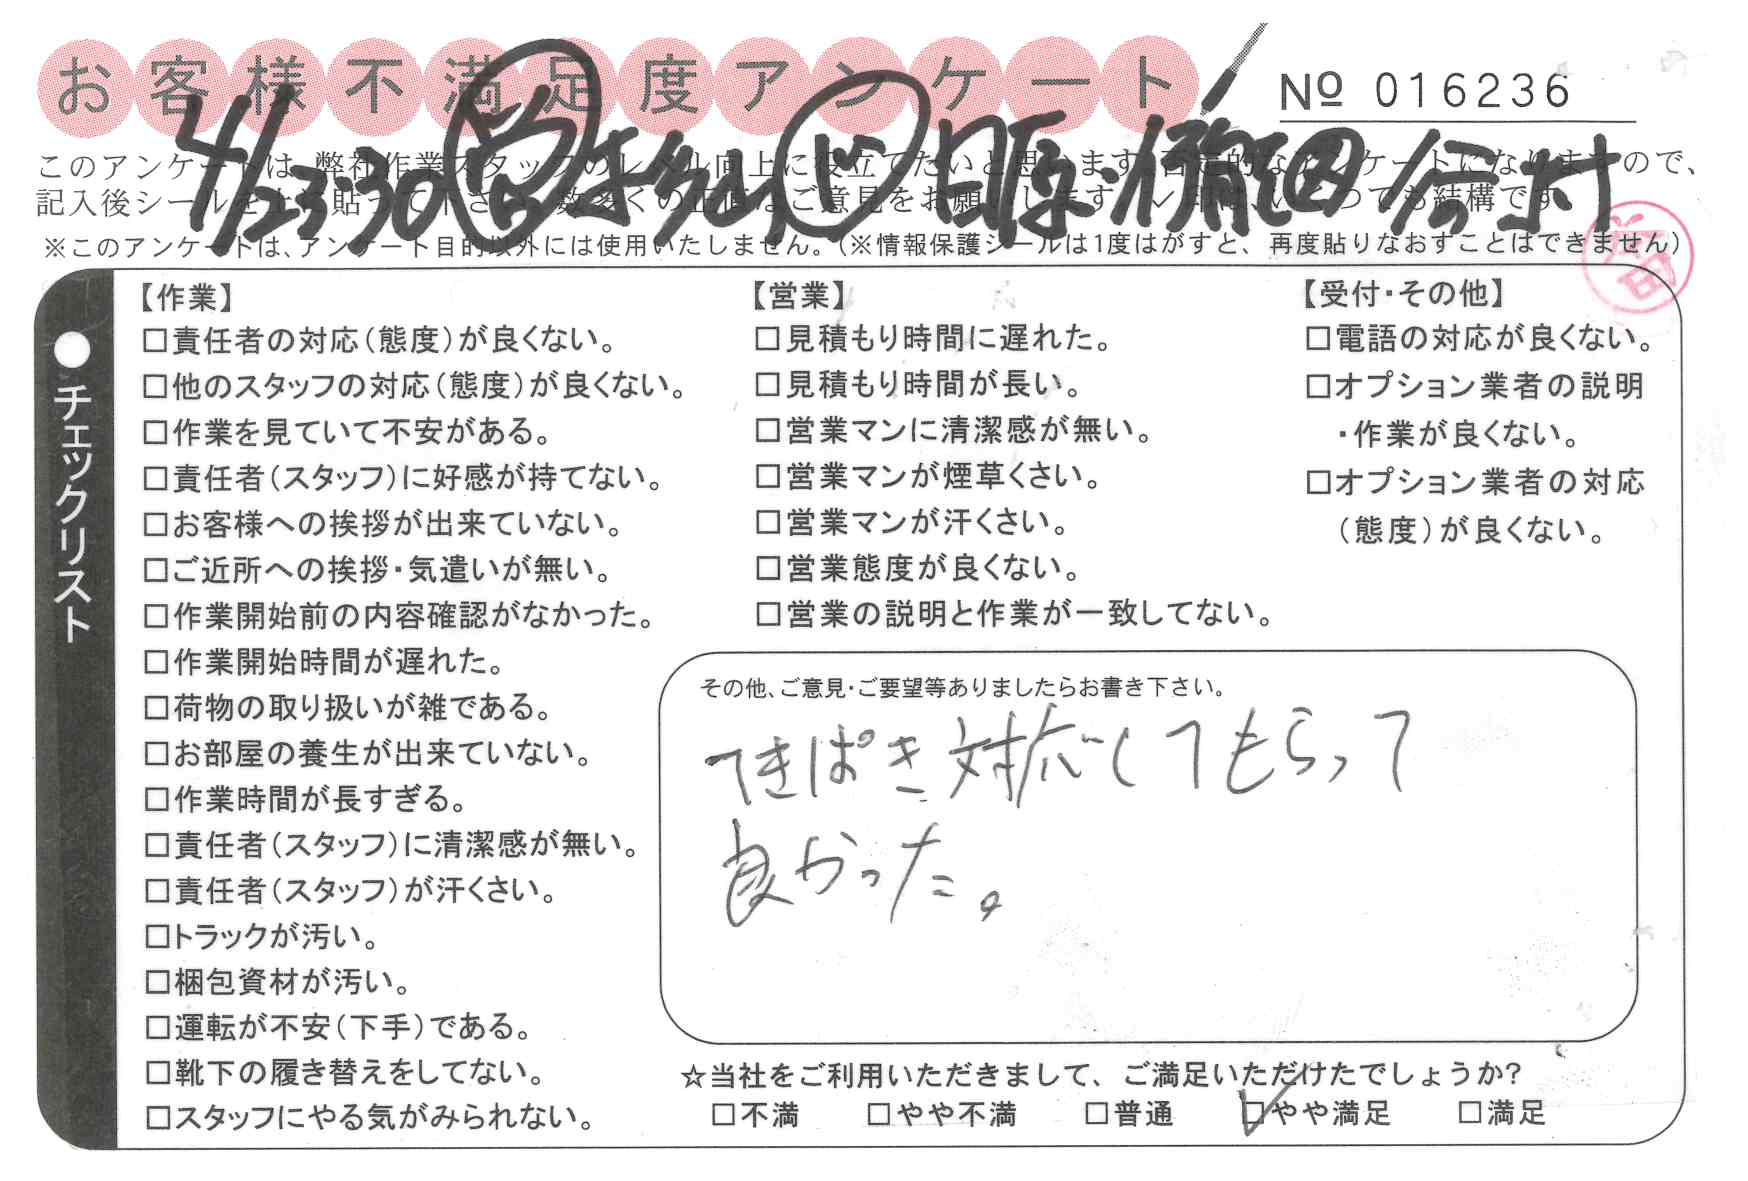 お客様不満足度アンケート
№ 016236
このアンケートは、弊社作業スタッフのレベル向上に役立てたいと思います。否定的なアンケートになりますので、
記入後シールを上に貼って下さい。数多くの正直なご意見をお願いします。✓印は、いくつでも結構です。
※このアンケートは、アンケート目的以外には使用いたしません。(※情報保護シールは1度はがすと、再度貼りなおすことはできません)
●チェックリスト
【作業】
□責任者の対応(態度)が良くない。
□他のスタッフの対応(態度)が良くない。
□作業を見ていて不安がある。
□責任者(スタッフ)に好感が持てない。
□お客様への挨拶が出来ていない。
□ご近所への挨拶・気遣いが無い。
□作業開始前の内容確認がなかった。
□作業開始時間が遅れた。
□荷物の取り扱いが雑である。
□お部屋の養生が出来ていない。
□作業時間が長すぎる。
□責任者(スタッフ)に清潔感が無い。
□責任者(スタッフ)が汗くさい。
□トラックが汚い。
□梱包資材が汚い。
□運転が不安(下手)である。
□靴下の履き替えをしてない。
□スタッフにやる気がみられない。
【営業】
□見積もり時間に遅れた。
□見積もり時間が長い。
□営業マンに清潔感が無い。
□営業マンが煙草くさい。
□営業マンが汗くさい。
□営業態度が良くない。
□営業の説明と作業が一致してない。
【受付・その他】
□電話の対応が良くない。
□オプション業者の説明
・作業が良くない。
□オプション業者の対応
(態度)が良くない。
その他、ご意見・ご要望等ありましたらお書き下さい。
てきぱき対応してもらって
良かった。
☆当社をご利用いただきまして、ご満足いただけたでしょうか?
□不満 □やや不満 □普通 ☑やや満足 □満足